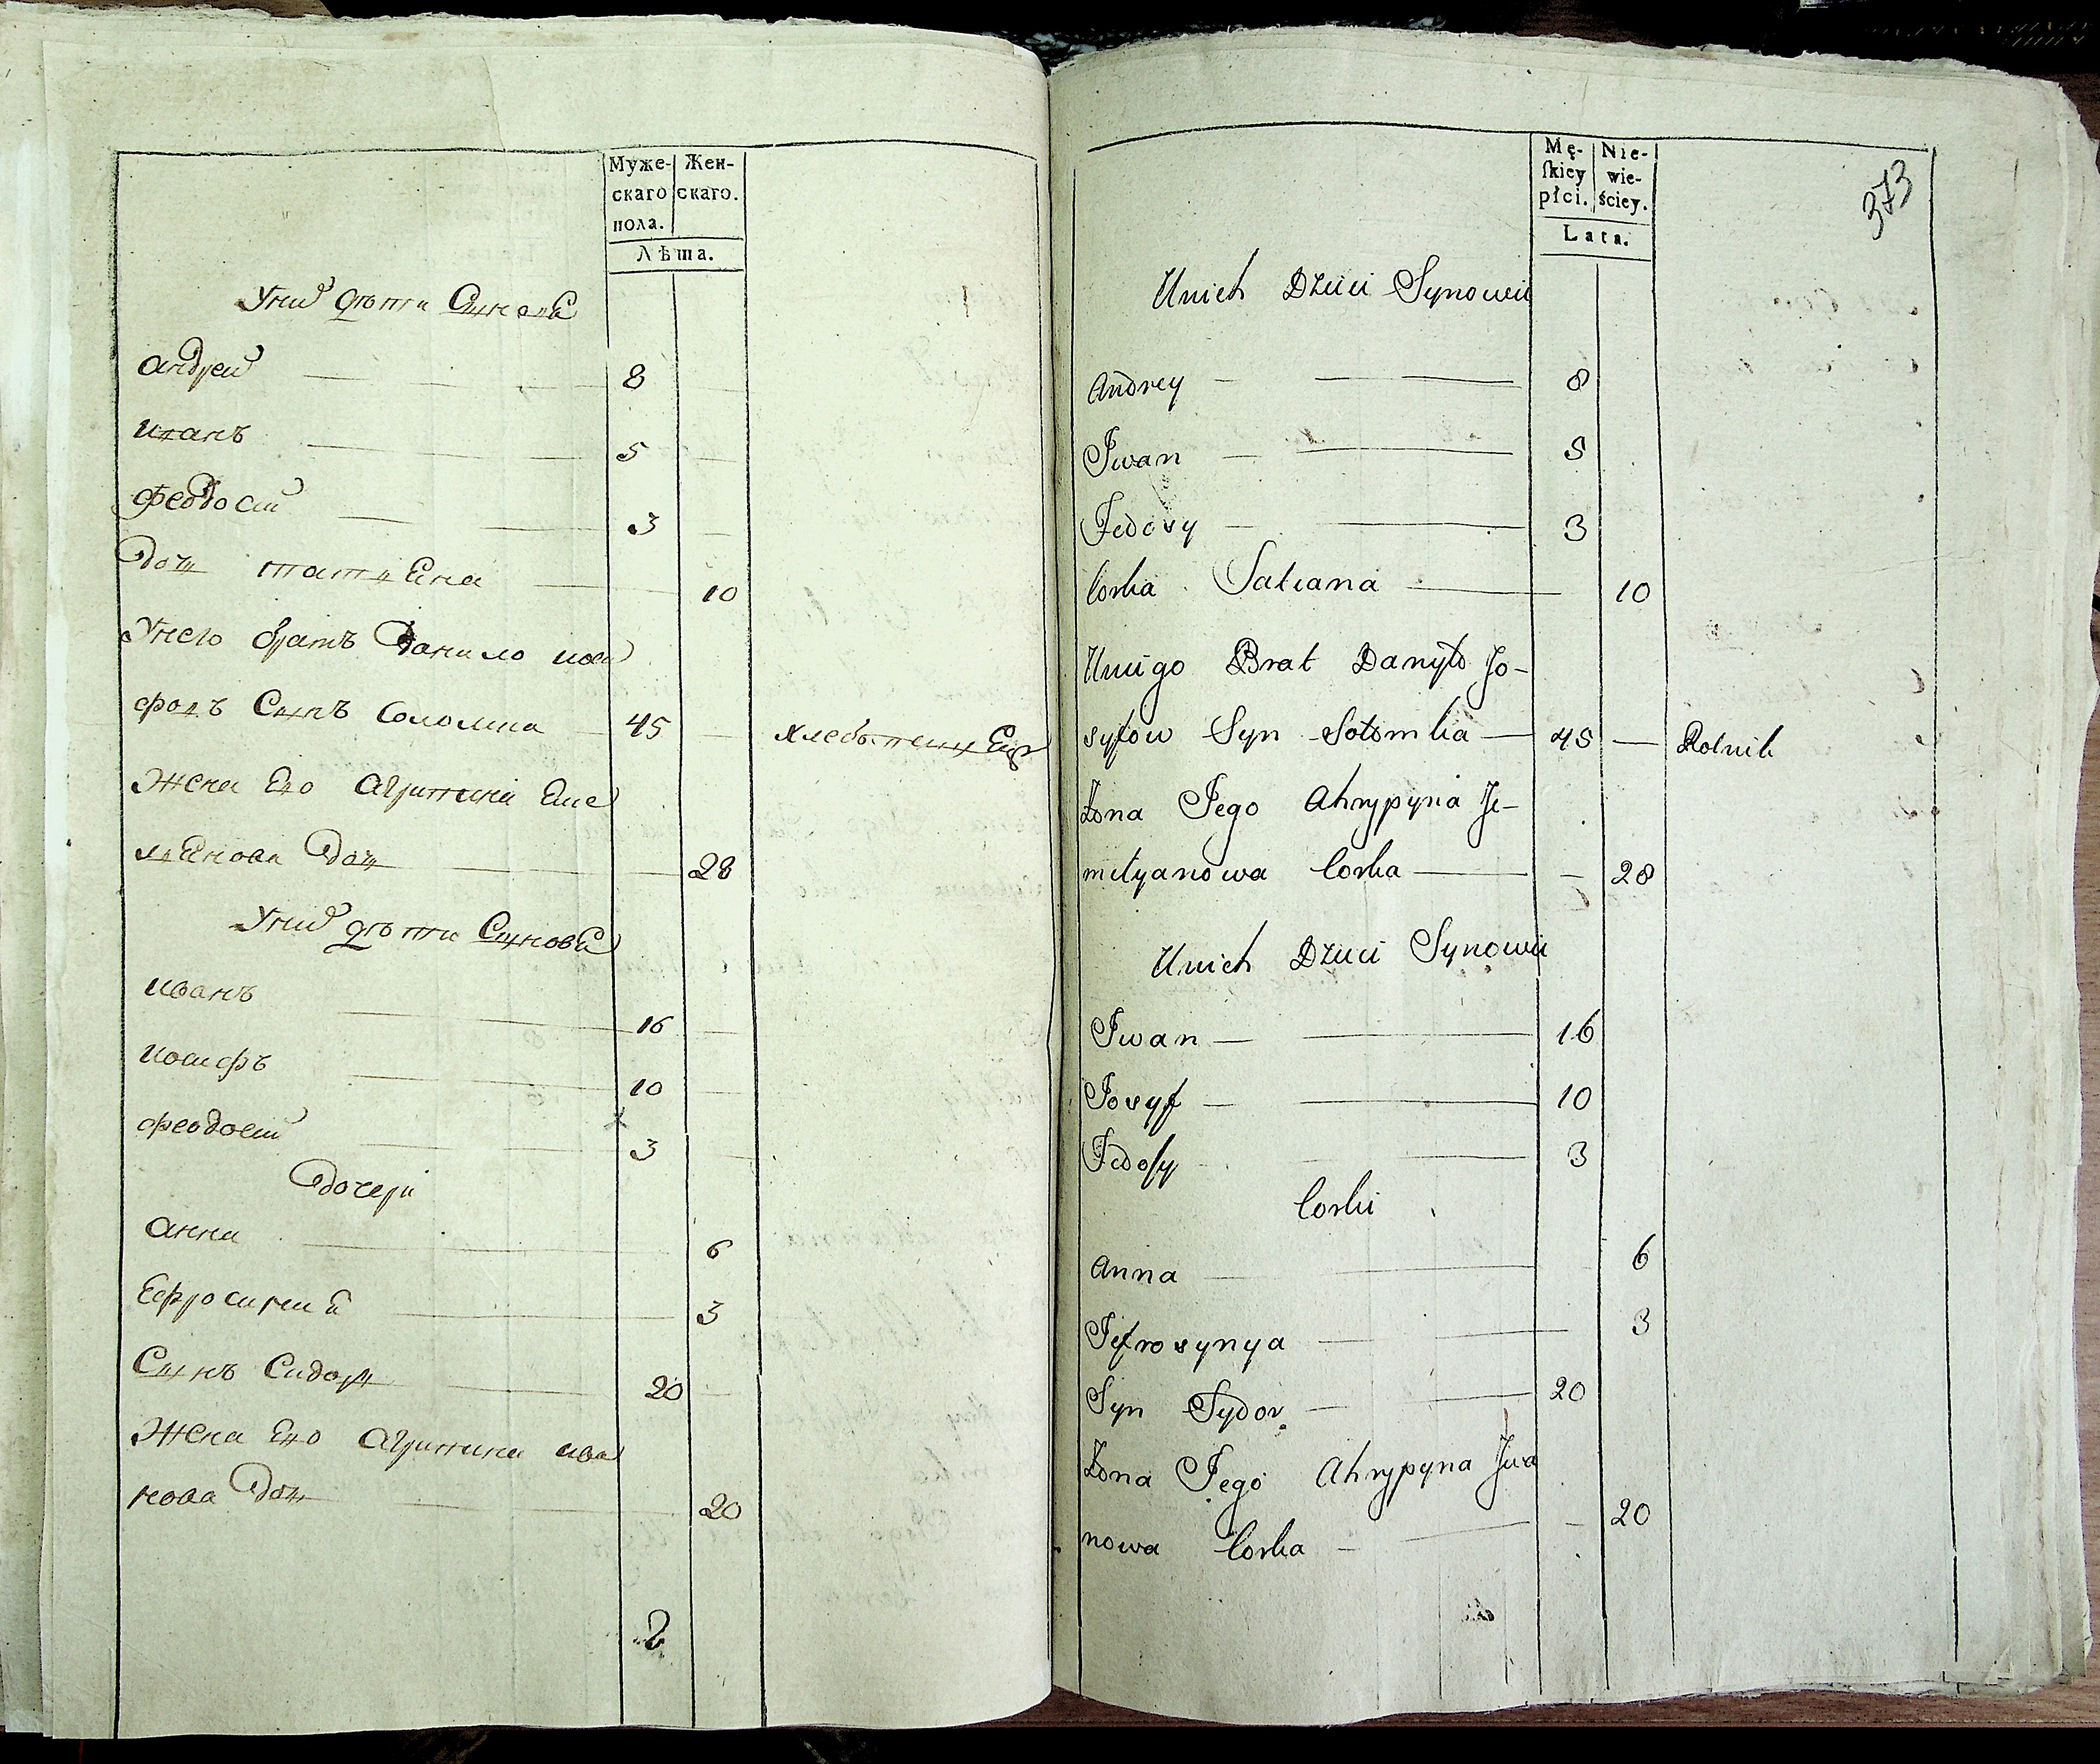 Муже-
скаго
пола.
Жен-
скаго.
Лѣта.
Уних дѣти Сынове
Андрей 8
Иванъ 5
Феодосий 3
Дочь Татьяна 10
Унего братъ Данило Иоси
фовъ Сынъ Соломка 45 хлебопашец
Жена Его Агрипина Еме
льянова Дочь 28
Уних дѣти Сынове
Иванъ 16
Иосифъ 10
Феодосий 3
Дочери
Анна 6
Ефросиния 3
Сынъ Сидоръ 20
Жена Его Агрипина Ива
нова Дочь 20
Mę-
ſkiey
płci.
Nie-
wie-
ściey.
Lata.
373
Unich Dzieci Synowie
Andrey 8
Iwan 5
Fedosy 3
Corka Tatiana 10
Uniego Brat Danyło Jo-
syfow Syn Sołomka 45 Rolnik
Żona Jego Ahrypyna Je-
melyanowa Corka 28
Unich Dzieci Synowie
Iwan 16
Josyf 10
Fedoſy 3
Corki
Anna 6
Jefrosynya 3
Syn Sydor 20
Żona Jego Ahrypyna Iwa
nowa Corka 20